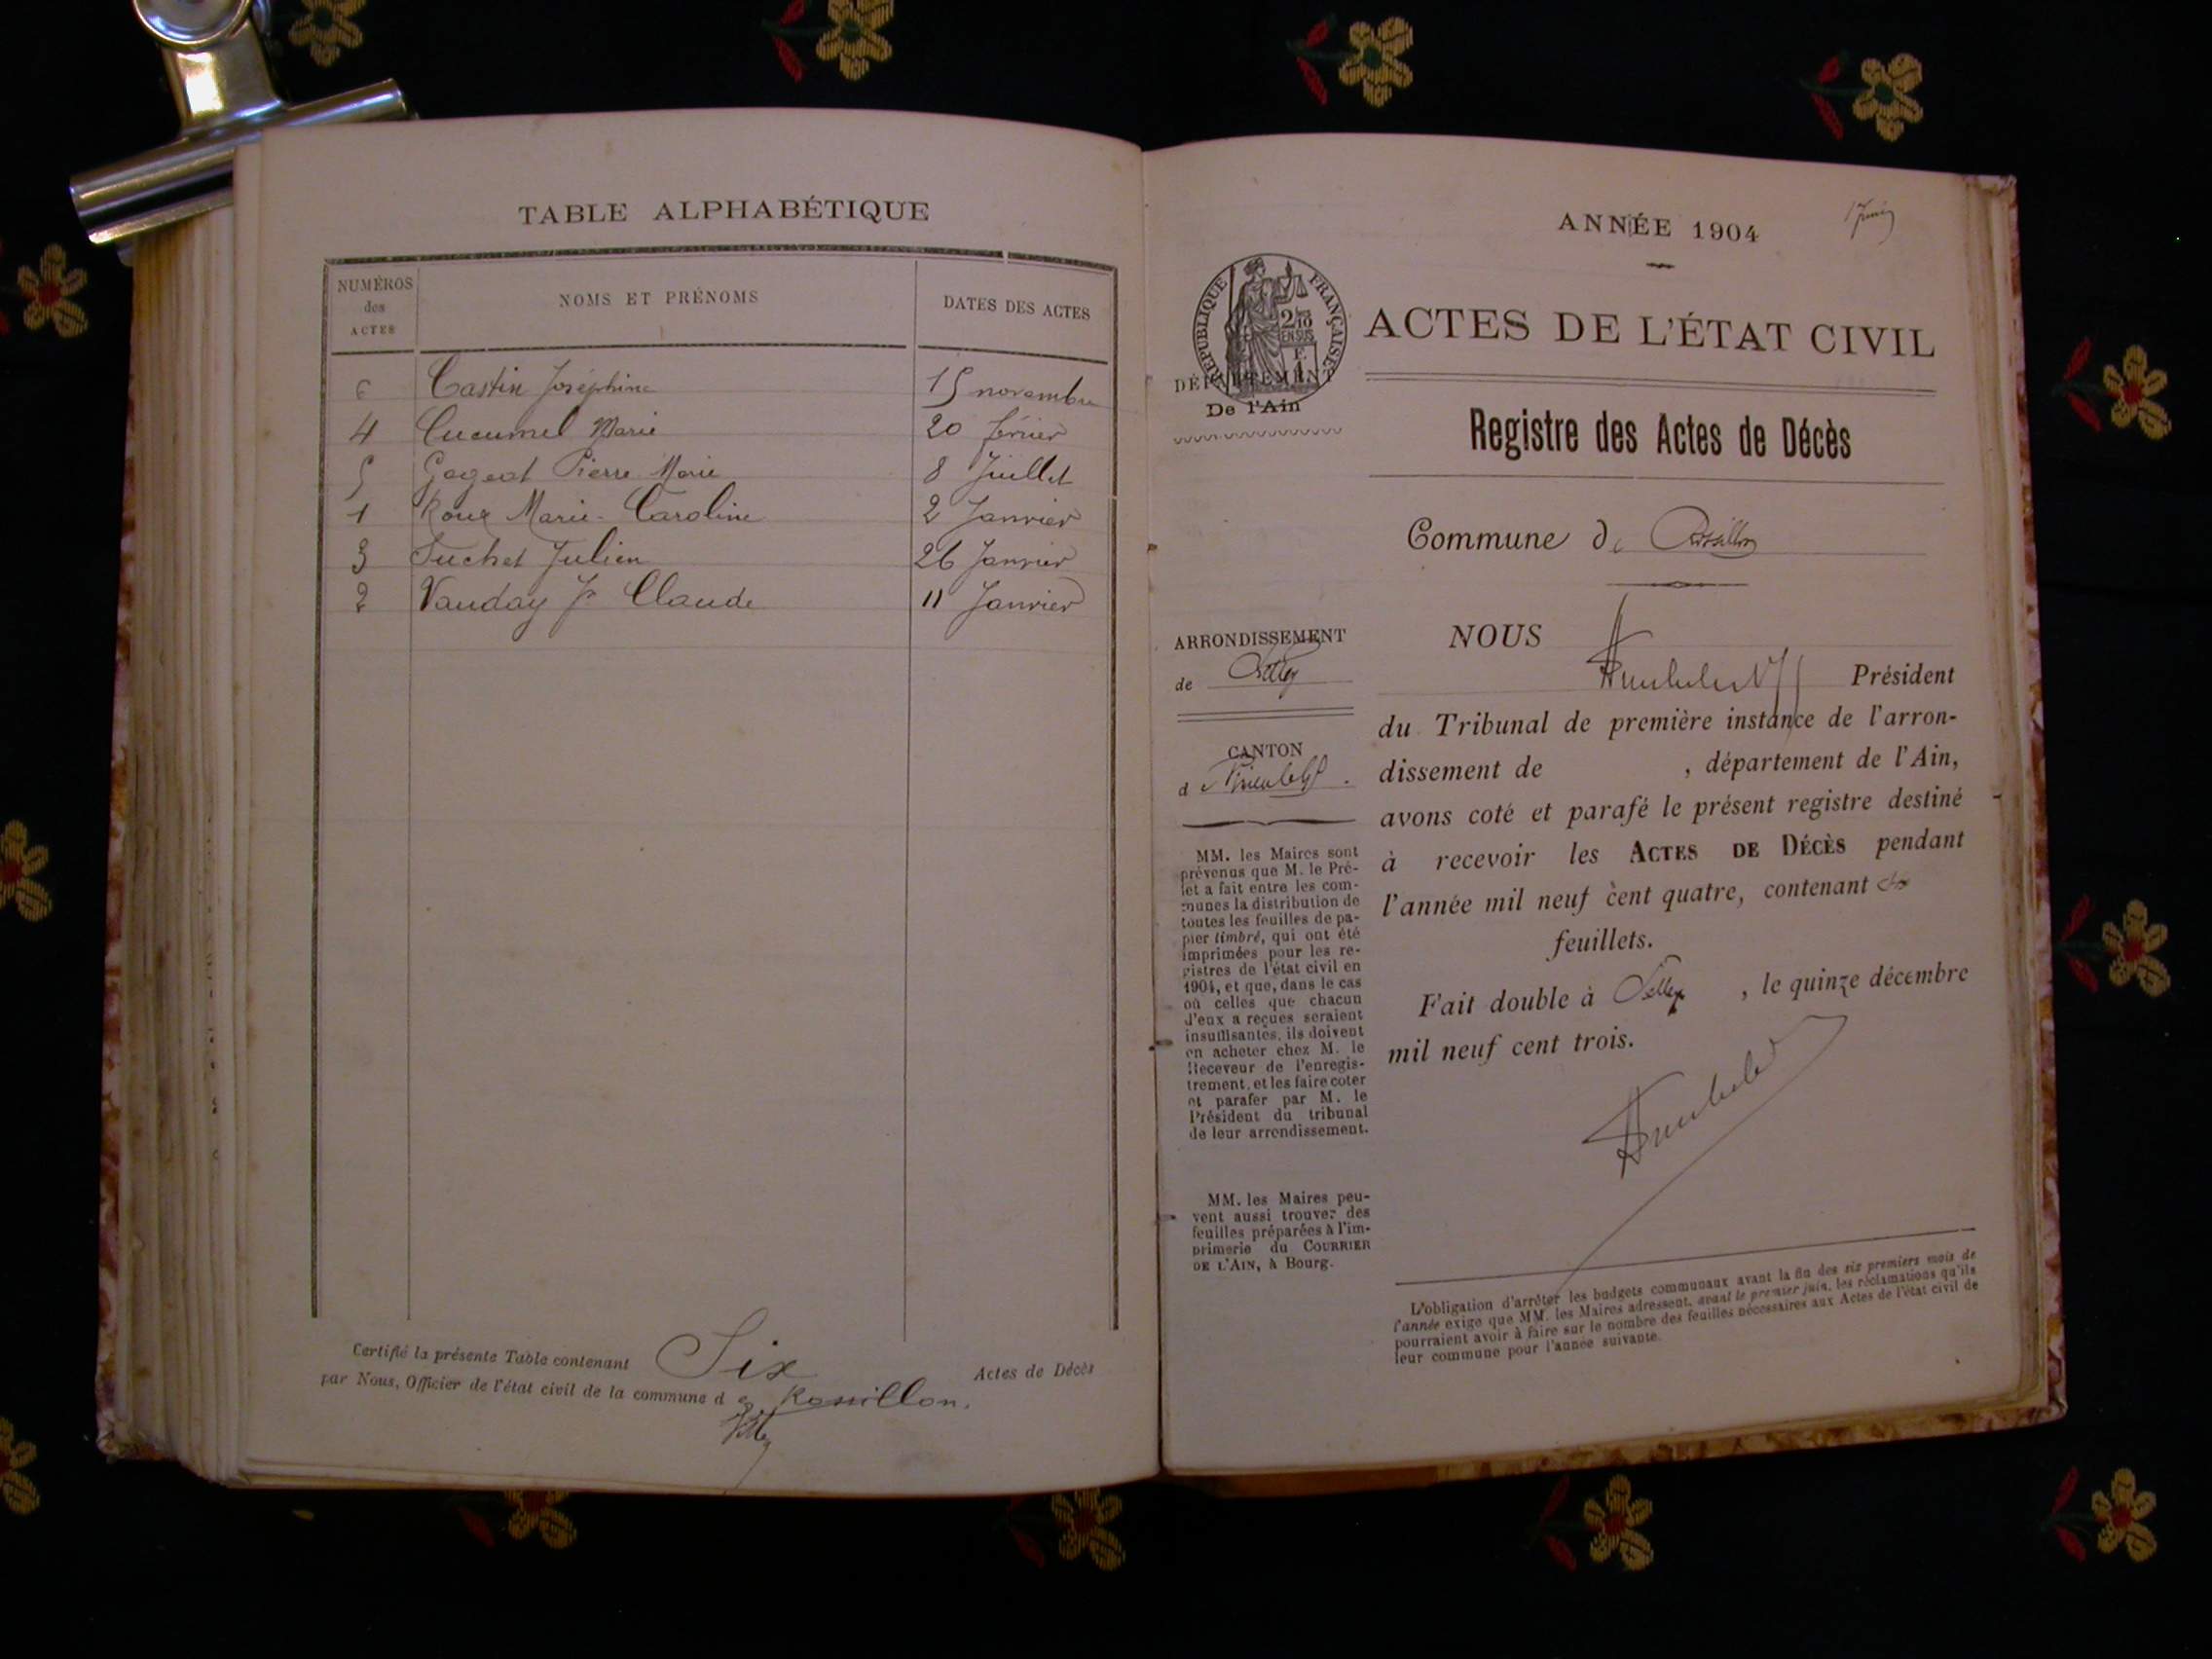 TABLE ALPHABÉTIQUE
NUMÉROS des ACTES
NOMS ET PRÉNOMS
DATES DES ACTES
6 Castin Joséphine 15 novembre
4 Cucumel Marie 20 février
5 Gageat Pierre Marie 8 Juillet
1 Roux Marie-Caroline 2 Janvier
3 Suchet Julien 26 Janvier
2 Vauday Jh Claude 11 Janvier
Certifié la présente Table contenant Six Actes de Décès
par Nous, Officier de l'état civil de la commune de Rossillon.
ANNÉE 1904
RÉPUBLIQUE FRANÇAISE
2/10 EN SUS
DÉPARTEMENT
De l'Ain
ACTES DE L'ÉTAT CIVIL
Registre des Actes de Décès
Commune de Rossillon
ARRONDISSEMENT
de Belley
CANTON
de Virieu le Gd.
MM. les Maires sont
prévenus que M. le Pré-
fet a fait entre les com-
munes la distribution de
toutes les feuilles de pa-
pier timbré, qui ont été
imprimées pour les re-
gistres de l'état civil en
1904, et que, dans le cas
où celles que chacun
d'eux a reçues seraient
insuffisantes, ils doivent
en acheter chez M. le
Receveur de l'enregis-
trement, et les faire coter
et parafer par M. le
Président du tribunal
de leur arrondissement.
MM. les Maires peu-
vent aussi trouver des
feuilles préparées à l'im-
primerie du COURRIER
DE L'AIN, à Bourg.
NOUS
Président
du Tribunal de première instance de l'arron-
dissement de , département de l'Ain,
avons coté et parafé le présent registre destiné
à recevoir les ACTES DE DÉCÈS pendant
l'année mil neuf cent quatre, contenant
feuillets.
Fait double à Belley , le quinze décembre
mil neuf cent trois.
L'obligation d'arrêter les budgets communaux avant la fin des six premiers mois de
l'année exige que MM. les Maires adressent, avant le premier juin, les réclamations qu'ils
pourraient avoir à faire sur le nombre des feuilles nécessaires aux Actes de l'état civil de
leur commune pour l'année suivante.